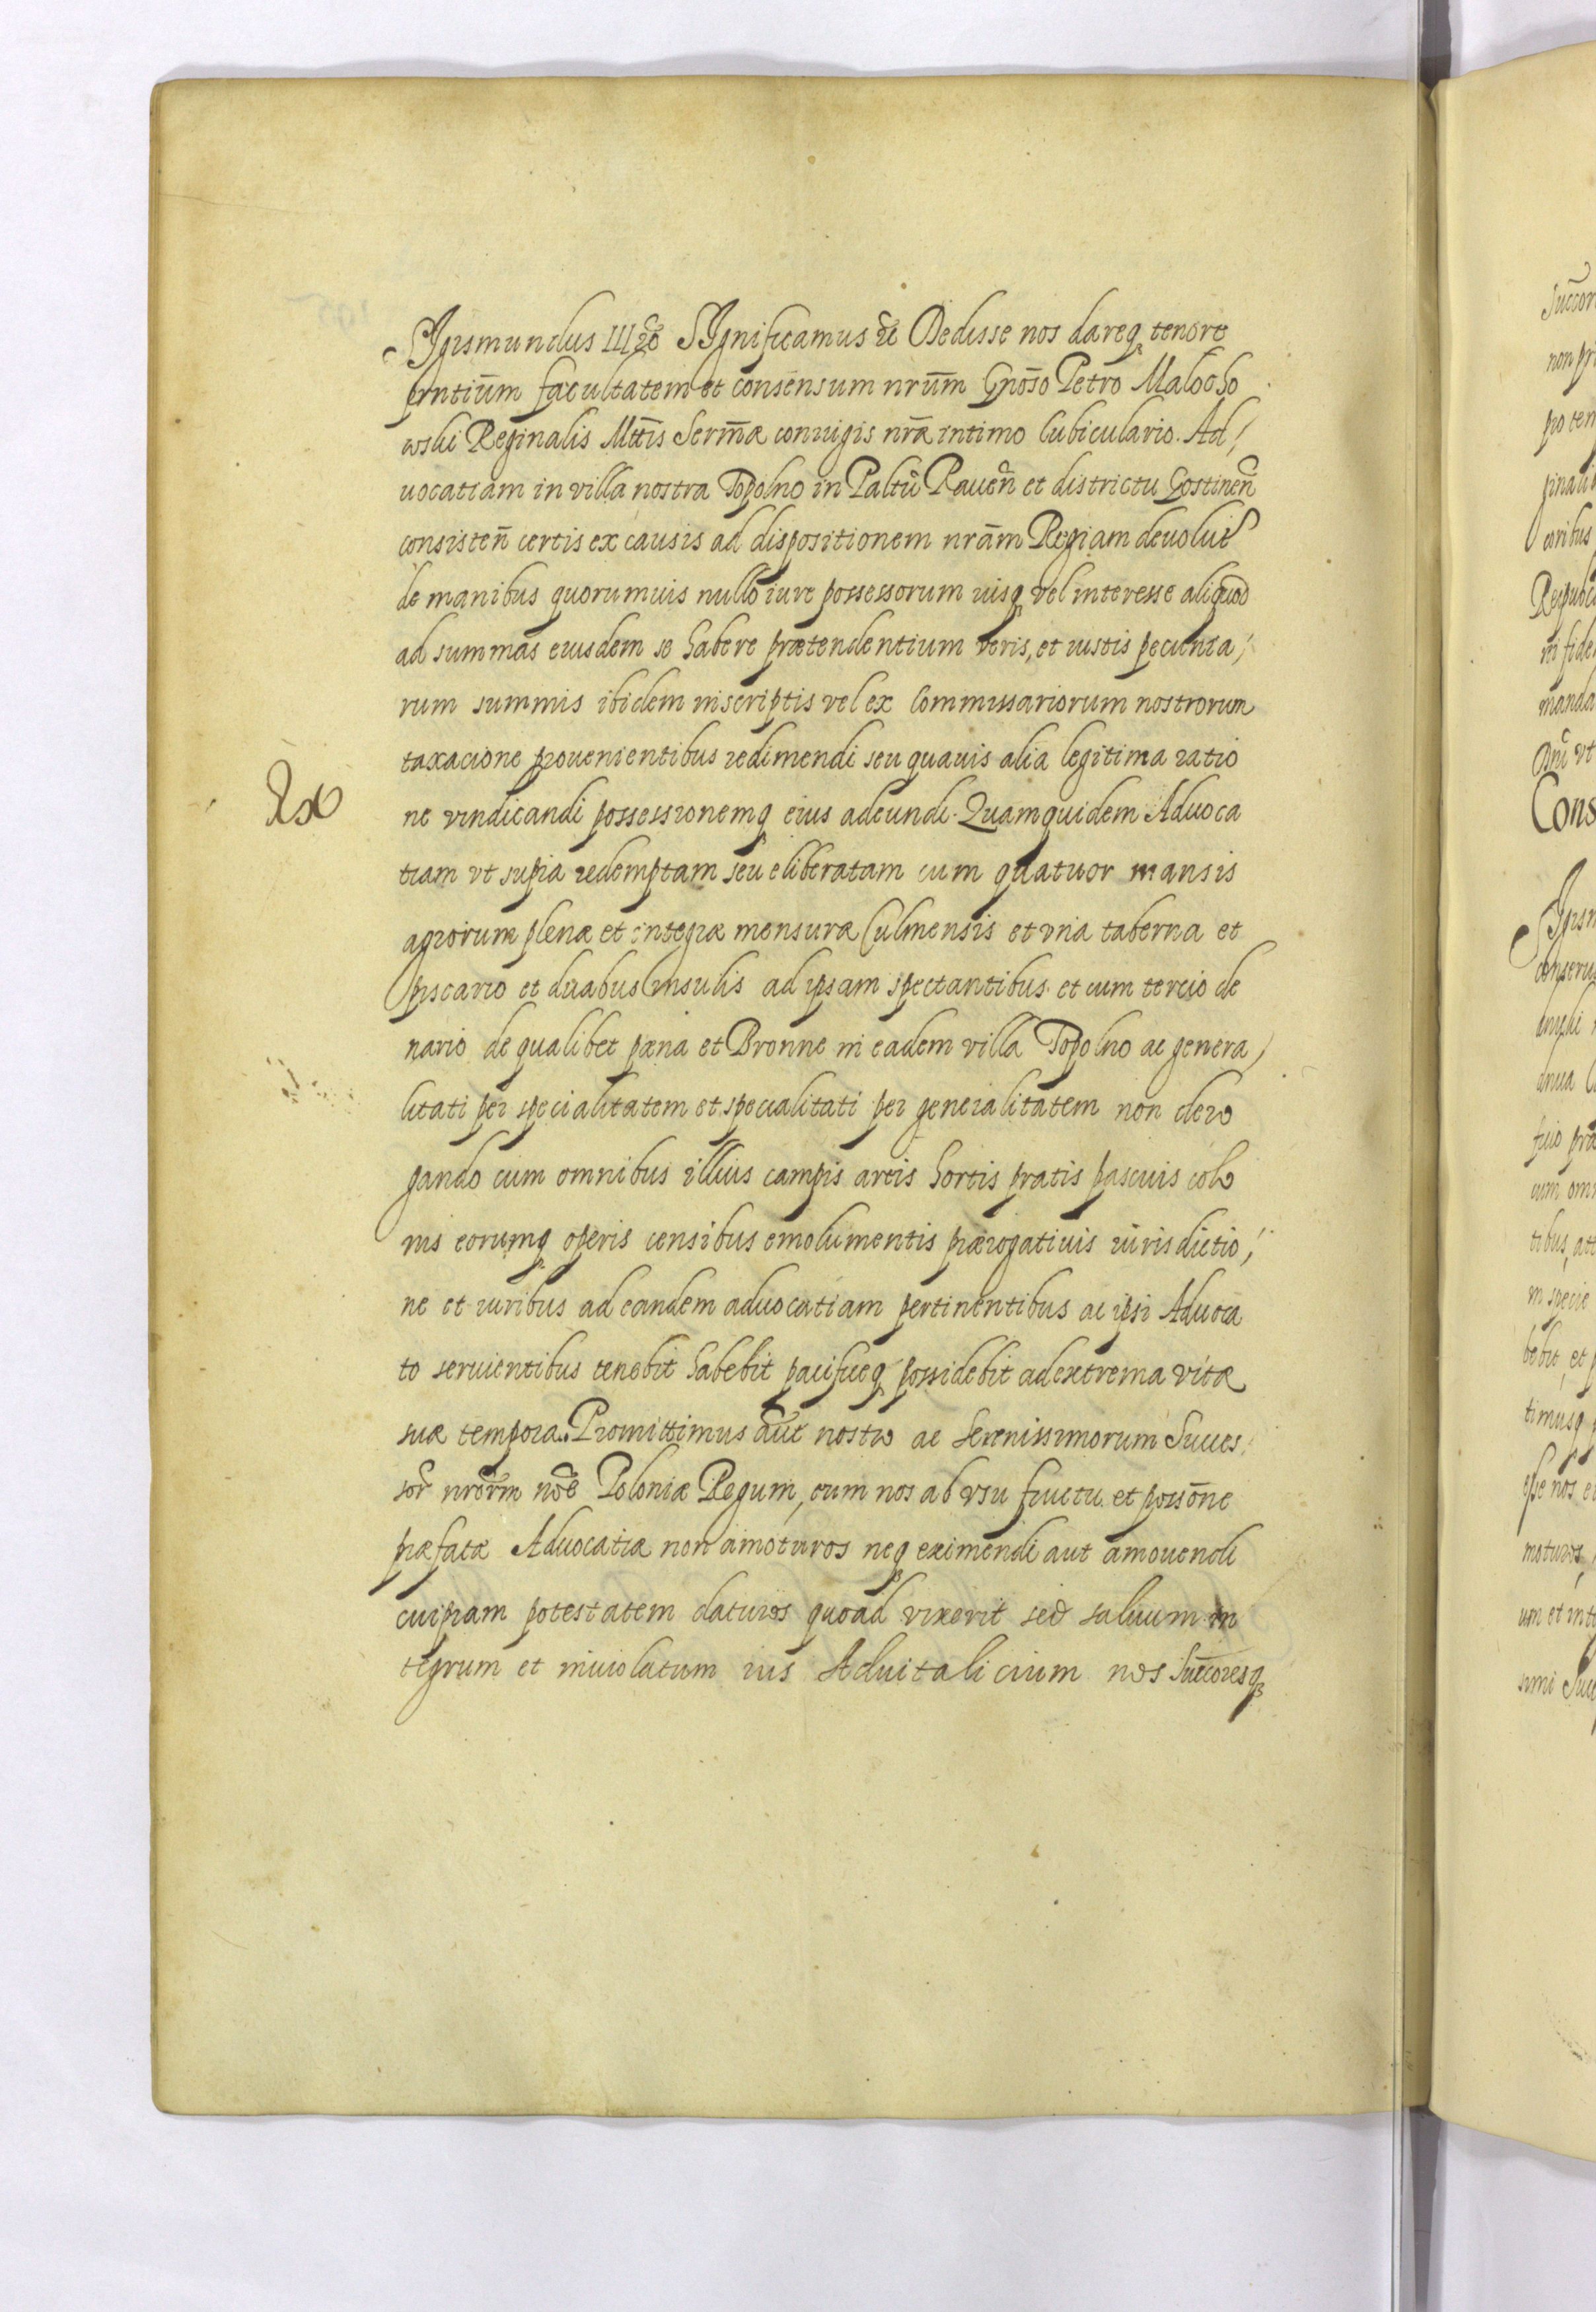 SIgismundus III etc SIgnificamus etc Dedisse nos dareq tenore
prntium̄ facultatem et consensum nrūm Gnoso Petro Malocho
wski Reginalis Mttis Serm̄æ coniugis nrǣ intimo Cubiculario. Ad,
uocatiam in villa nostra Topolno in Paltu Raueñ et districtu Gostineñ
consisteñ certis ex causis ad dispositionem nrām Regiam deuolut
de manibus quorumuis nullo iure possessorum iusq vel interesse aliquod
ad summas eiusdem se habere prætendentium veris, et iustis pecunia,
rum summis ibidem inscriptis vel ex Commissariorum nostrorum
taxacione prouenientibus redimendi seu quauis alia legitima ratio
ne vindicandi possessionemq eius adeundi. Quamquidem Aduoca
tiam vt supra redemptam seu eliberatam cum quatuor mansis
agrorum plenæ et integræ mensuræ Culmensis et vna taberna et
piscario et duabus Insulis ad ipsam spectantibus et cum tercio de
nario de qualibet pœna et Bronne in eadem villa Topolno ac genera,
litati per specialitatem et specialitati per generalitatem non dero
gando cum omnibus illius campis areis hortis pratis pascuis colo
nis eorumq operis censibus emolumentis prærogatiuis iurisdictio,
ne et iuribus ad eandem aduocatiam pertinentibus ac ipsi Aduoca
to seruientibus tenebit habebit pacificeq possidebit ad extrema vitæ
suæ tempora. Promittimus aut nostro ac Serenissimorum Succes
sor nrorm noe Poloniæ Regum, eum nos ab vsu fructu et possōne
præfatæ Aduocatiæ non amoturos neq eximendi aut amouendi
cuipiam potestatem daturos quoad vixerit sed saluum in
tegrum et inuiolatum ius Aduitalicium nos Succoresq